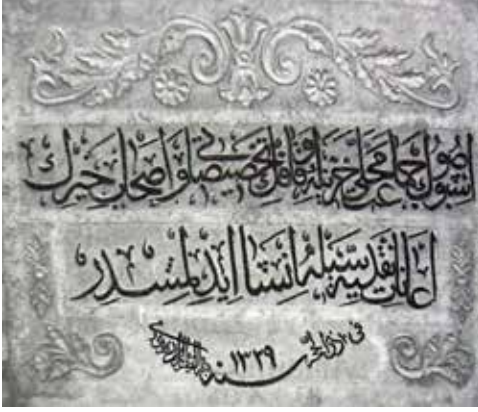 اشبو جامع محلى خزينه اوقافك تخصيصاتيله و اصحاب خيرك
اعانات نقديه سيله انشا ايدلمشدر
فى سنه ١٣٢٩